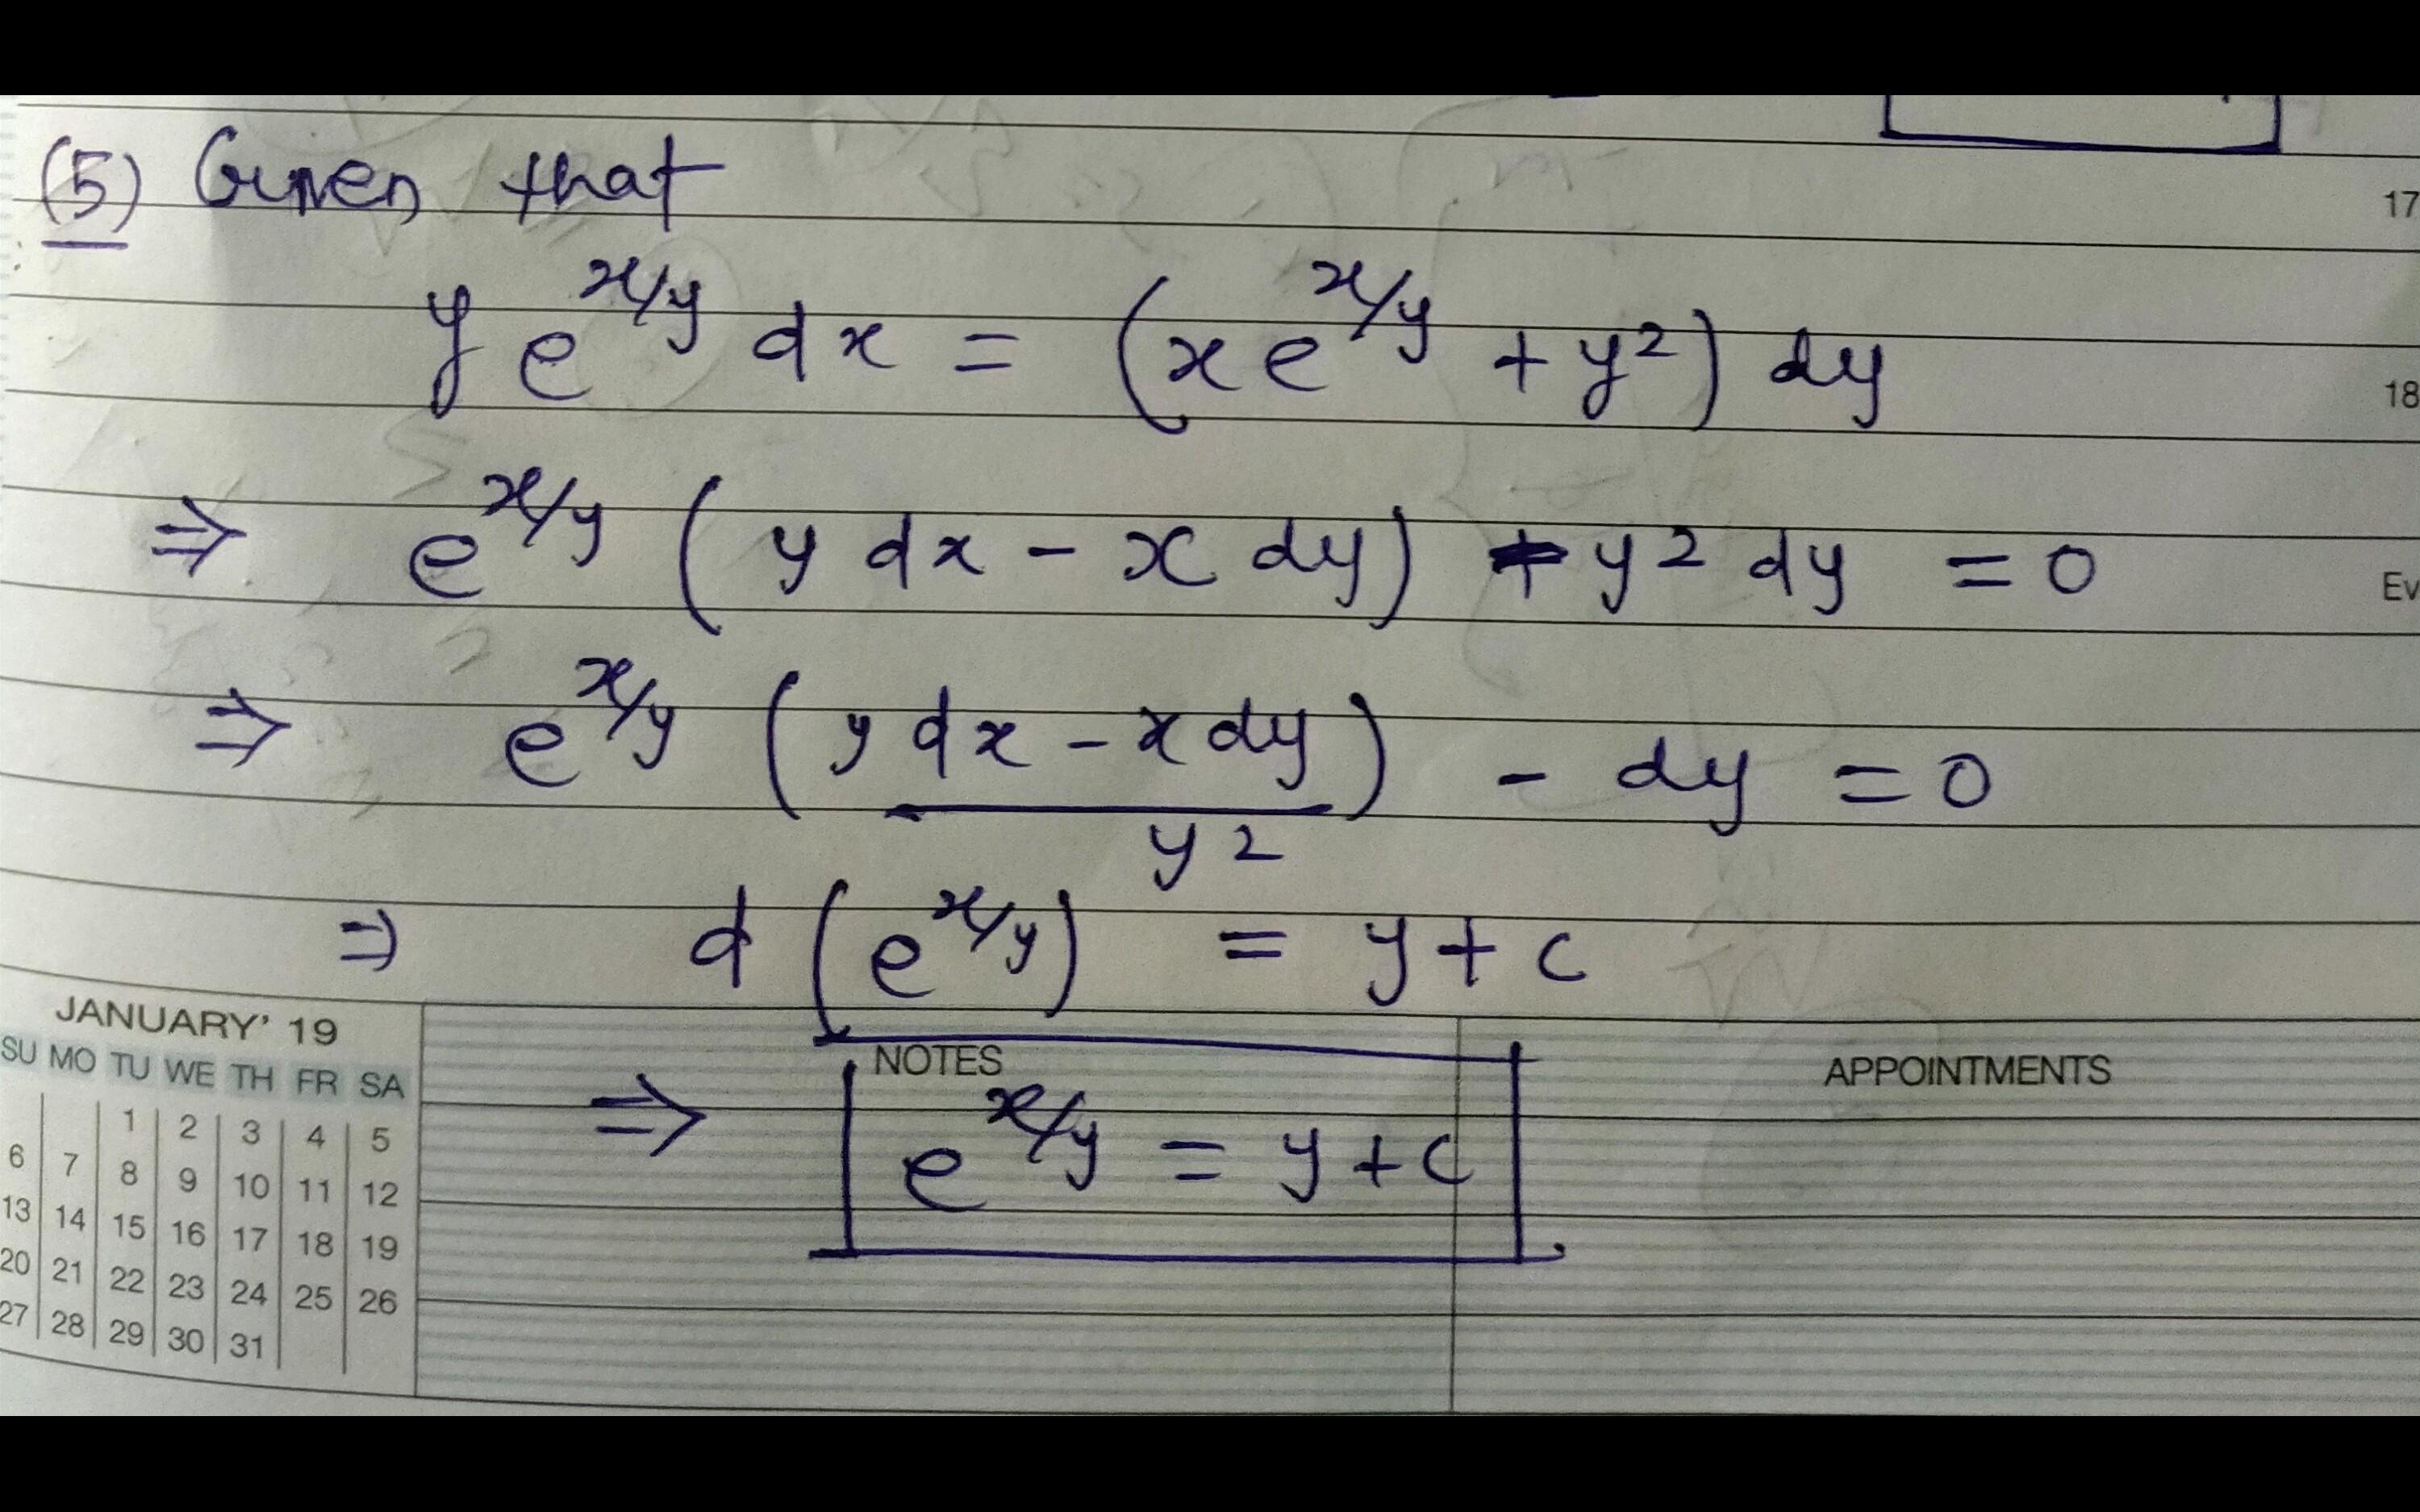 (5) Given that
17
y e^{x/y} dx = (x e^{x/y} + y²) dy
18
⇒ e^{x/y} (y dx - x dy) - y² dy = 0
Ev
⇒ e^{x/y} (\frac{y dx - x dy}{y²}) - dy = 0
⇒ d (e^{x/y}) = y + c
JANUARY' 19
SU MO TU WE TH FR SA
1 2 3 4 5
6 7 8 9 10 11 12
13 14 15 16 17 18 19
20 21 22 23 24 25 26
27 28 29 30 31
NOTES
APPOINTMENTS
⇒ e^{x/y} = y + c